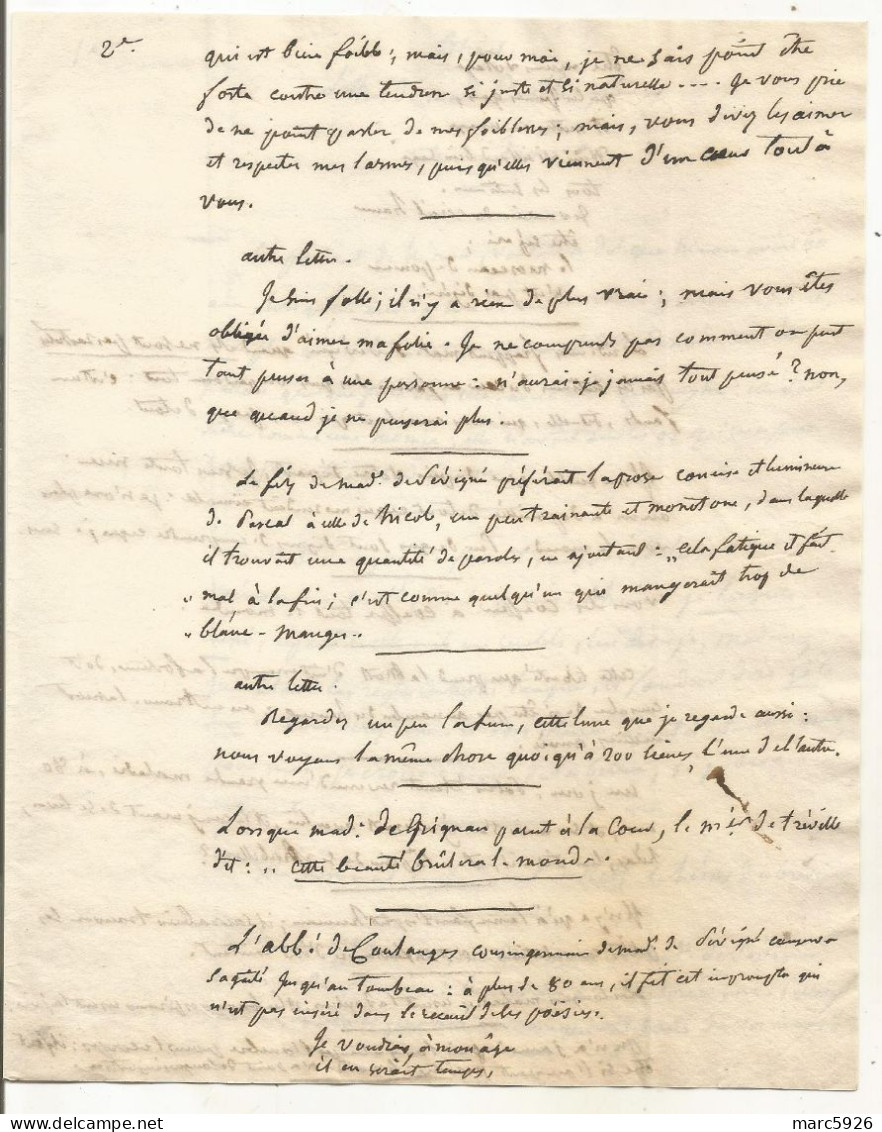 2e.
qui est bien foible; mais, pour moi, je ne sais point être
forte contre une tendresse si juste et si naturelle .... Je vous prie
de ne point parler de mes foiblesses; mais, vous devez les aimer
et respecter mes larmes, puisqu'elles viennent d'un cœur tout à
vous.
autre lettre.
Je suis folle; il n'y a rien de plus vrai; mais vous êtes
obligée d'aimer ma folie. Je ne comprends pas comment on peut
tant penser à une personne: n'aurai-je jamais tout pensé? non,
que quand je ne penserai plus.
Le fils de mad. de Sévigné préférait la prose concise et lumineuse
de Pascal à celle de Nicole, un peu trainante et monotone, dans laquelle
il trouvait une quantité de paroles, en ajoutant: „ cela fatigue et fait
„ mal, à la fin; c'est comme quelqu'un qui mangerait trop de
„ blanc-manger.
autre lettre.
Regardez un peu la lune, cette lune que je regarde aussi:
nous voyons la même chose quoiqu'à 200 lieues l'une de l'autre.
Lorsque mad. de Grignan parut à la Cour, le mis de tréville
dit: „ cette beauté brûlera le monde.
L'abbé de Coulanges cousin germain de mad. de Sévigné conserva
sa gaîté jusqu'au tombeau: à plus de 80 ans, il fit cet impromptu qui
n'est pas inséré dans le recueil de ses poésies.
Je voudrais, à mon âge
il en serait temps,
marc5926